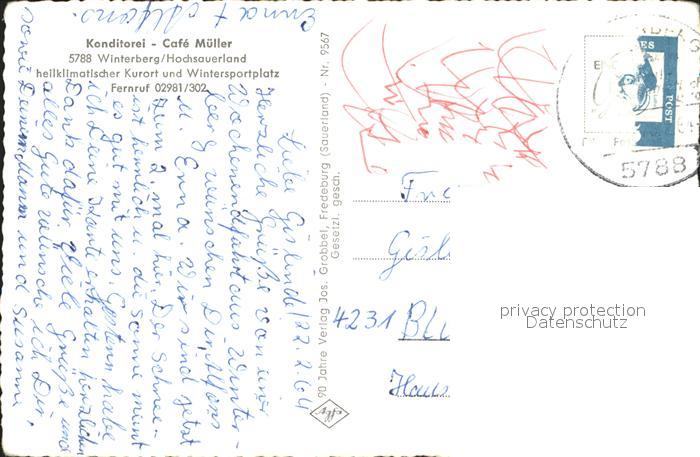 Konditorei - Café Müller
5788 Winterberg/Hochsauerland
heilklimatischer Kurort und Wintersportplatz
Fernruf 02981/302
Liebe Gislinde! 22.2.64
Herzliche Grüße von einer
Wochenendfahrt aus Winter-
berg wünschen Dir Alfons
u. Enna. Wir sind jetzt
zum 2. mal hier. Der Schnee
ist herrlich u. die Sonne meint
es gut mit uns. Gestern habe
ich Deine Karte erhalten herzlichen
Dank dafür. Viele Grüße und
alles Gute wünsche ich Dir,
sowie Deinem Mann und Susanne.
Enna + Alfons.
90 Jahre Verlag Jos. Grobbel, Fredeburg (Sauerland) - Nr. 9567
Gesetzl. gesch.
Gisl
4231 Bl
Haus
5788
POST
privacy protection
Datenschutz